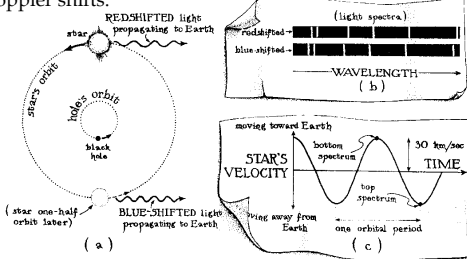 oppler shifts.
REDSHIFTED light
propagating to Earth
star
star's orbit
hole's orbit
black
hole
(star one-half
orbit later)
BLUE-SHIFTED light
propagating to Earth
(a)
(light spectra)
redshifted
blue shifted
WAVELENGTH
(b)
moving toward Earth
bottom
spectrum
30 km/sec
STAR'S
VELOCITY
TIME
top
spectrum
ving away from
Earth
one orbital period
(c)